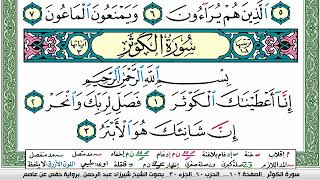 الَّذِينَ هُمْ يُرَاءُونَ ٦ وَيَمْنَعُونَ الْمَاعُونَ ٧
سُورَةُ الْكَوْثَرِ
بِسْمِ اللَّهِ الرَّحْمَٰنِ الرَّحِيمِ
إِنَّا أَعْطَيْنَاكَ الْكَوْثَرَ ١ فَصَلِّ لِرَبِّكَ وَانْحَرْ ٢
إِنَّ شَانِئَكَ هُوَ الْأَبْتَرُ ٣
سورة الكوثر - الصفحة ٦٠٢ - الحزب ٦٠ - الجزء ٣٠ - بصوت الشيخ شيرزاد عبدالرحمن برواية حفص عن عاصم